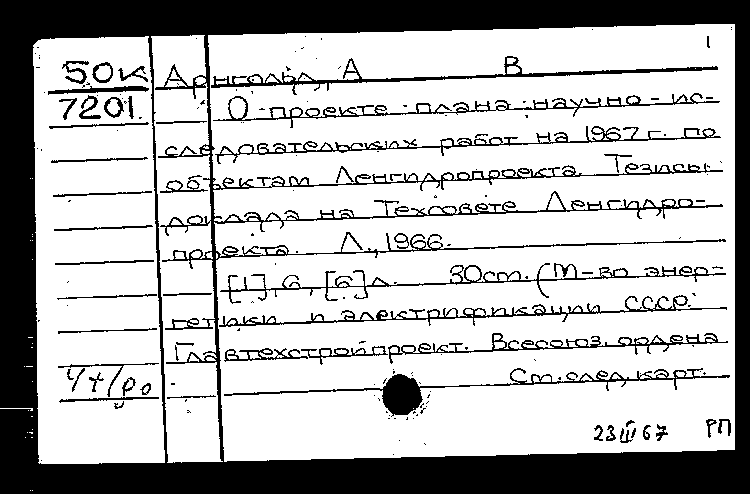 1
50к Арнгольд, А В
7201. О проекте плана научно-ис-
следовательских работ на 1967 г. по
объектам Ленгидропроекта. Тезисы
доклада на Техсовете Ленгидро-
проекта. Л., 1966.
[1], 6, [6] л. 30 см. (М-во энер-
гетики и электрификации СССР.
Главтехстройпроект. Всесоюз. ордена
Ст. след. карт.
23 III 67 РП